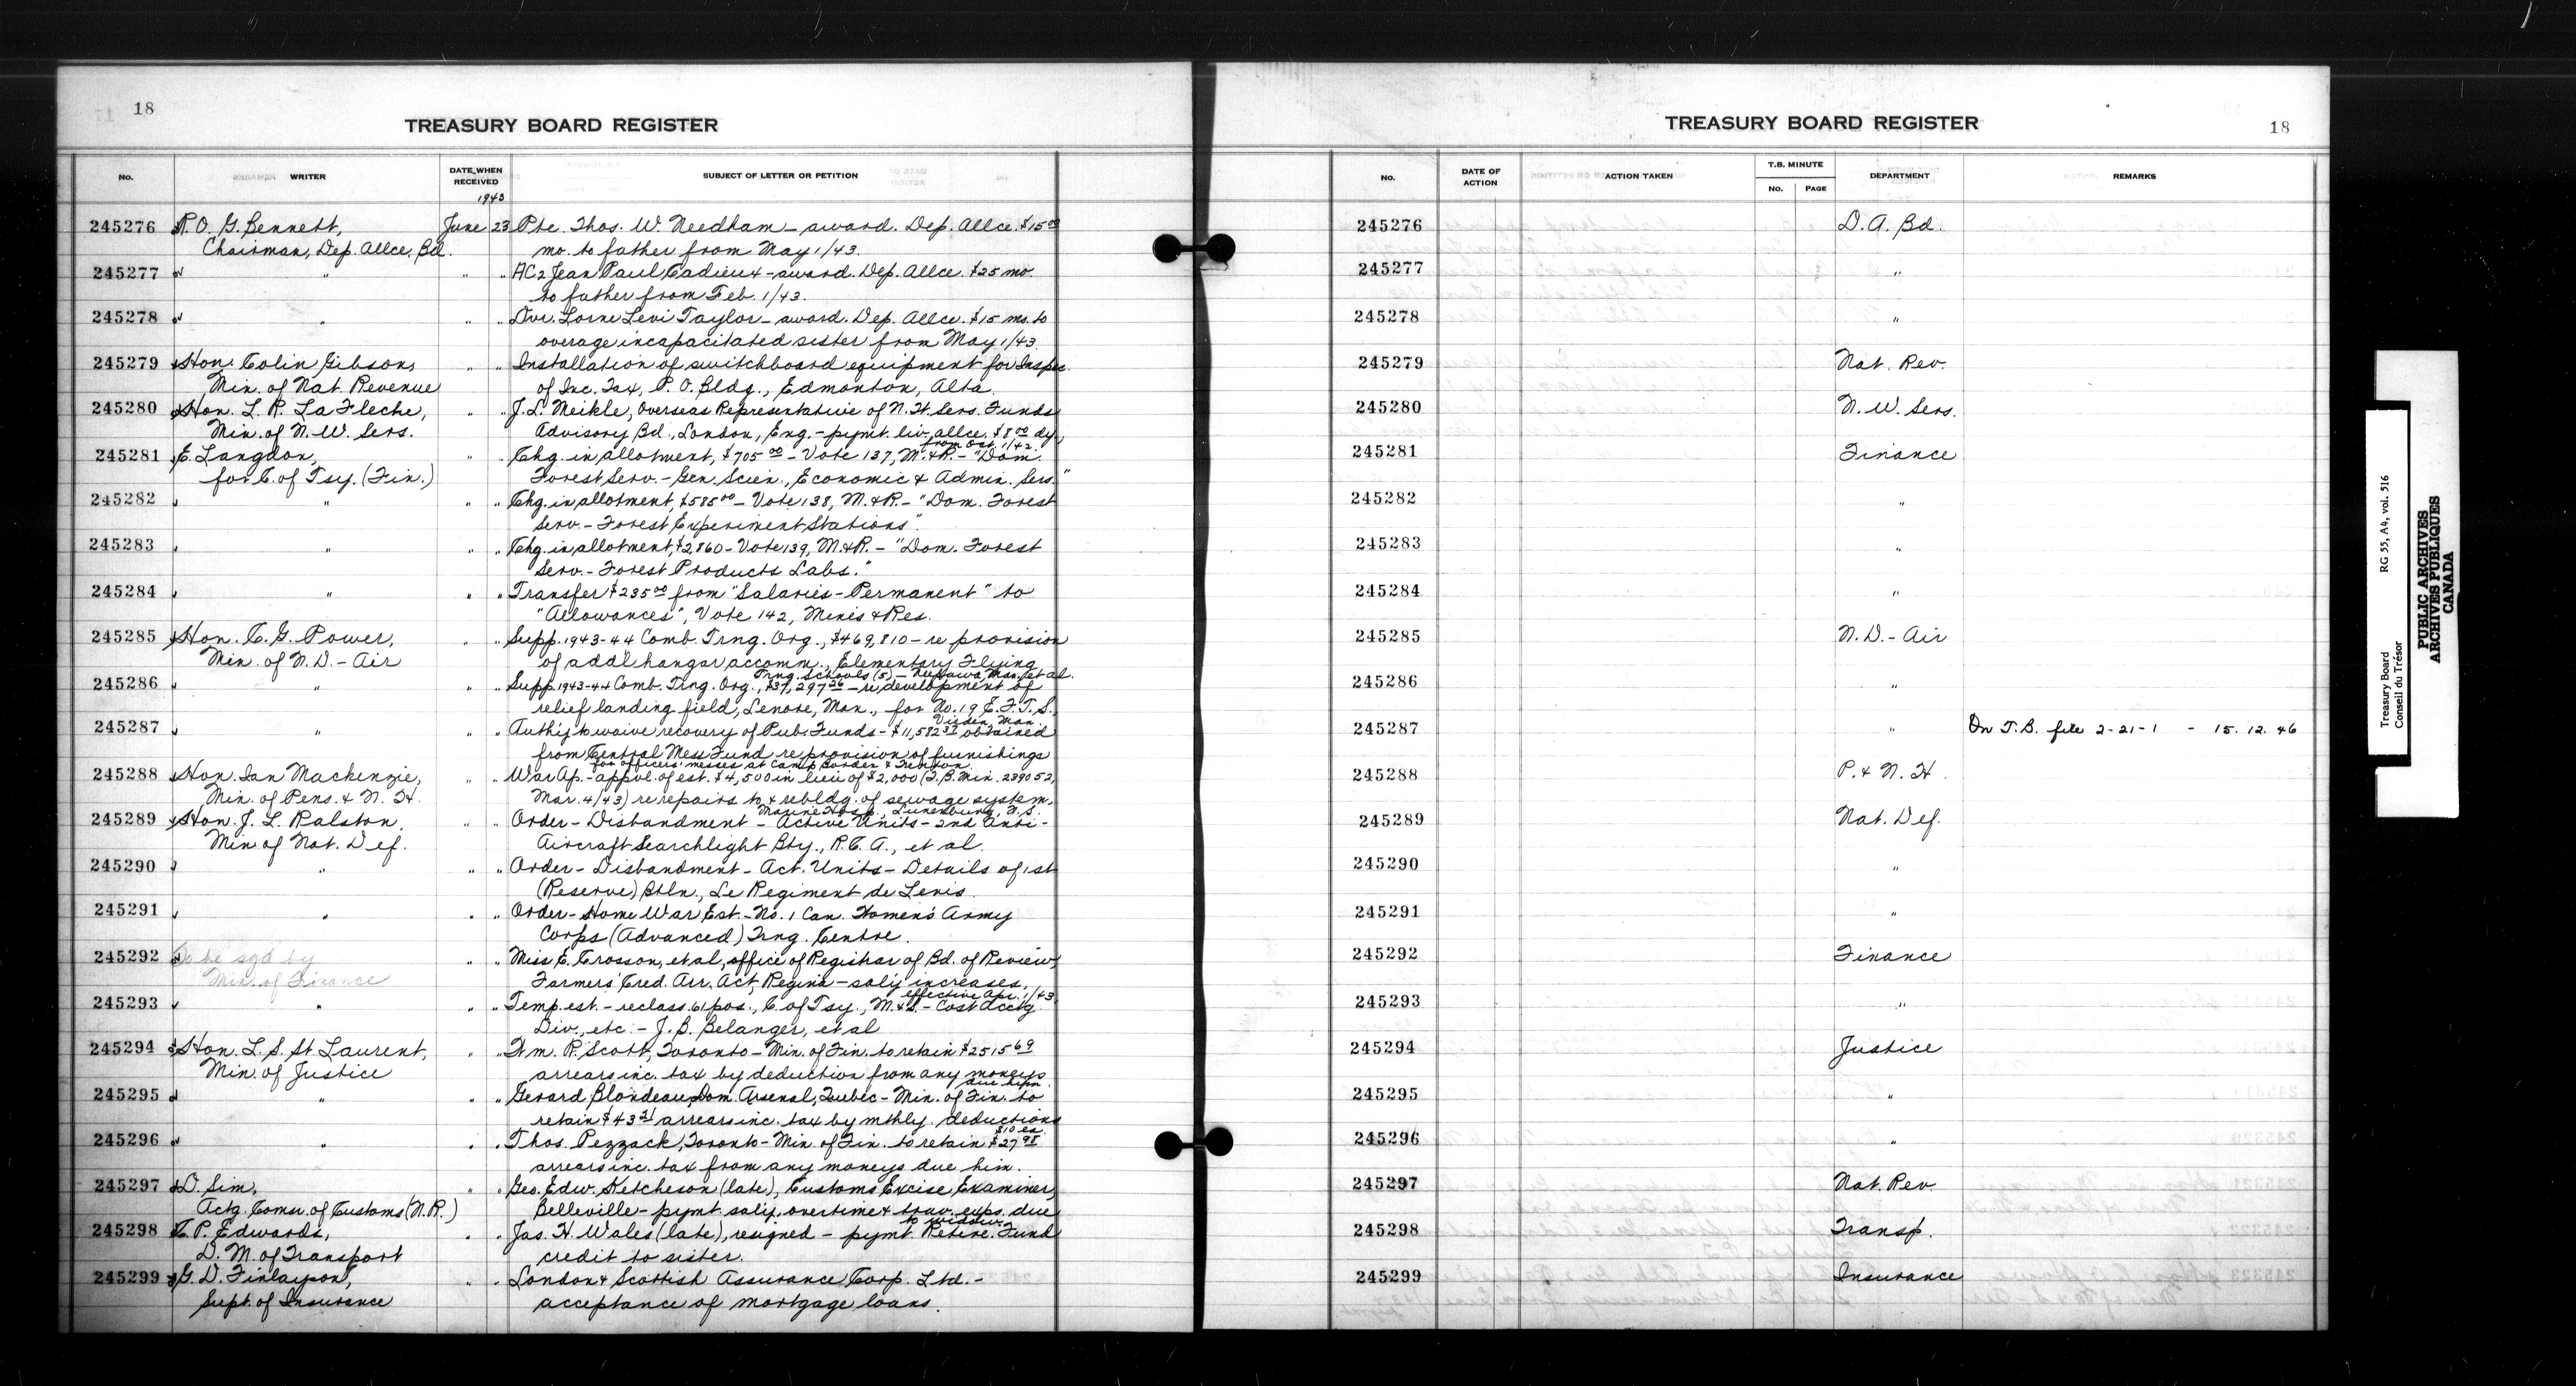 18
TREASURY BOARD REGISTER
No.
WRITER
DATE WHEN RECEIVED
SUBJECT OF LETTER OR PETITION
1943
245276 R. O. G. Bennett, June 23 Pte. Thos. W. Needham - award. Dep. Allce. $15 00
Chairman, Dep. Allce. Bd. mo. to father from May 1/43.
245277 " " " AC2 Jean Paul Cadieux - award. Dep. Allce. $25 mo.
to father from Feb. 1/43.
245278 " " " Dvr. Lorne Levi Taylor - award. Dep. Allce. $15 mo. to
overage incapacitated sister from May 1/43.
245279 Hon. Colin Gibson, " " Installation of switchboard equipment for Inspec.
Min. of Nat. Revenue of Inc. Tax, P. O. Bldg., Edmonton, Alta.
245280 Hon. L. R. LaFleche, " " J. L. Meikle, Overseas Representative of N. W. Sers. Funds
Min. of N. W. Sers. Advisory Bd., London, Eng. - pymt. liv. allce. $8 00 dy.
from Oct. 1/42.
245281 E. Langdon, " " Chg. in allotment, $705 00 - Vote 137, M. & R. - "Dom.
for C. of Tsy. (Fin.) Forest Serv. - Gen. Scien., Economic & Admin. Sers."
245282 " " " Chg. in allotment, $585 00 - Vote 138, M. & R. - "Dom. Forest
Serv. - Forest Experiment Stations".
245283 " " " Chg. in allotment, $2,860 - Vote 139, M. & R. - "Dom. Forest
Serv. - Forest Products Labs."
245284 " " " Transfer $235 00 from "Salaries - Permanent" to
"Allowances", Vote 142, Mines & Res.
245285 Hon. C. G. Power, " " Supp. 1943-44 Comb. Trng. Org., $469,810 - re provision
Min. of N. D. - Air of addl hangar accomm., Elementary Flying
Trng. Schools (5) - Neepawa, Man., et al.
245286 " " " Supp. 1943-44 Comb. Trng. Org., $37,297 26 - re development of
relief landing field, Lenore, Man., for No. 19 E. F. T. S.,
Virden, Man.
245287 " " " Auth'y to waive recovery of Pub. Funds - $11,582 37 obtained
from Central Mess Fund re provision of furnishings
for officers' messes at Camp Borden & Trenton.
245288 Hon. Ian Mackenzie, " " War Ap. - appvl. of est. $4,500 in lieu of $2,000 (T. B. Min. 239052,
Min. of Pens. & N. H. Mar. 4/43) re repairs to & rebldg. of sewage system,
Marine Hosp., Lunenburg, N. S.
245289 Hon. J. L. Ralston, " " Order - Disbandment - Active Units - 2nd Anti-
Min. of Nat. Def. Aircraft Searchlight Bty., R. C. A., et al.
245290 " " " Order - Disbandment - Act. Units - Details of 1st
(Reserve) Btln., Le Regiment de Levis.
245291 " " " Order - Home War Est. - No. 1 Can. Women's Army
Corps (Advanced) Trng. Centre.
245292 To be sgd by " " Miss E. Crosson, et al, office of Registrar of Bd. of Review,
Min. of Finance Farmers' Cred. Arr. Act, Regina - sal'y increases,
effective Apr. 1/43
245293 " " " Temp. est. - reclass. 61 pos., C. of Tsy., M. & S. - Cost Acctg.
Div., etc. - J. B. Belanger, et al
245294 Hon. L. S. St. Laurent, " " Wm. R. Scott, Toronto - Min. of Fin. to retain $2515 69
Min. of Justice arrears inc. tax by deduction from any moneys
due him.
245295 " " " Gerard Blondeau, Dom. Arsenal, Quebec - Min. of Fin. to
retain $43 21 arrears inc. tax by mthly. deductions
$10 ea.
245296 " " " Thos. Pezzack, Toronto - Min. of Fin. to retain $27 98
arrears inc. tax from any moneys due him.
245297 D. Sim, " " Geo. Edw. Ketcheson (late), Customs Excise Examiner,
Actg. Comsr. of Customs (N. R.) Belleville - pymt. sal'y, overtime & trav. exps. due
to widow.
245298 C. P. Edwards, " " Jas. H. Wales (late), resigned - pymt. Retire. Fund
D. M. of Transport credit to sister.
245299 G. D. Finlayson, " " London & Scottish Assurance Corp. Ltd. -
Supt. of Insurance acceptance of mortgage loans.
TREASURY BOARD REGISTER
18
No.
DATE OF ACTION
ACTION TAKEN
T.B. MINUTE
No.
PAGE
DEPARTMENT
REMARKS
245276 D. A. Bd.
245277 "
245278 "
245279 Nat. Rev.
245280 N. W. Sers.
245281 Finance
245282 "
245283 "
245284 "
245285 N. D. - Air
245286 "
245287 " On T.B. file 2-21-1 - 15.12.46
245288 P. & N. H.
245289 Nat. Def.
245290 "
245291 "
245292 Finance
245293 "
245294 Justice
245295 "
245296 "
245297 Nat. Rev.
245298 Transp.
245299 Insurance
Treasury Board RG 55, A4, vol. 516
Conseil du Trésor
PUBLIC ARCHIVES
ARCHIVES PUBLIQUES
CANADA